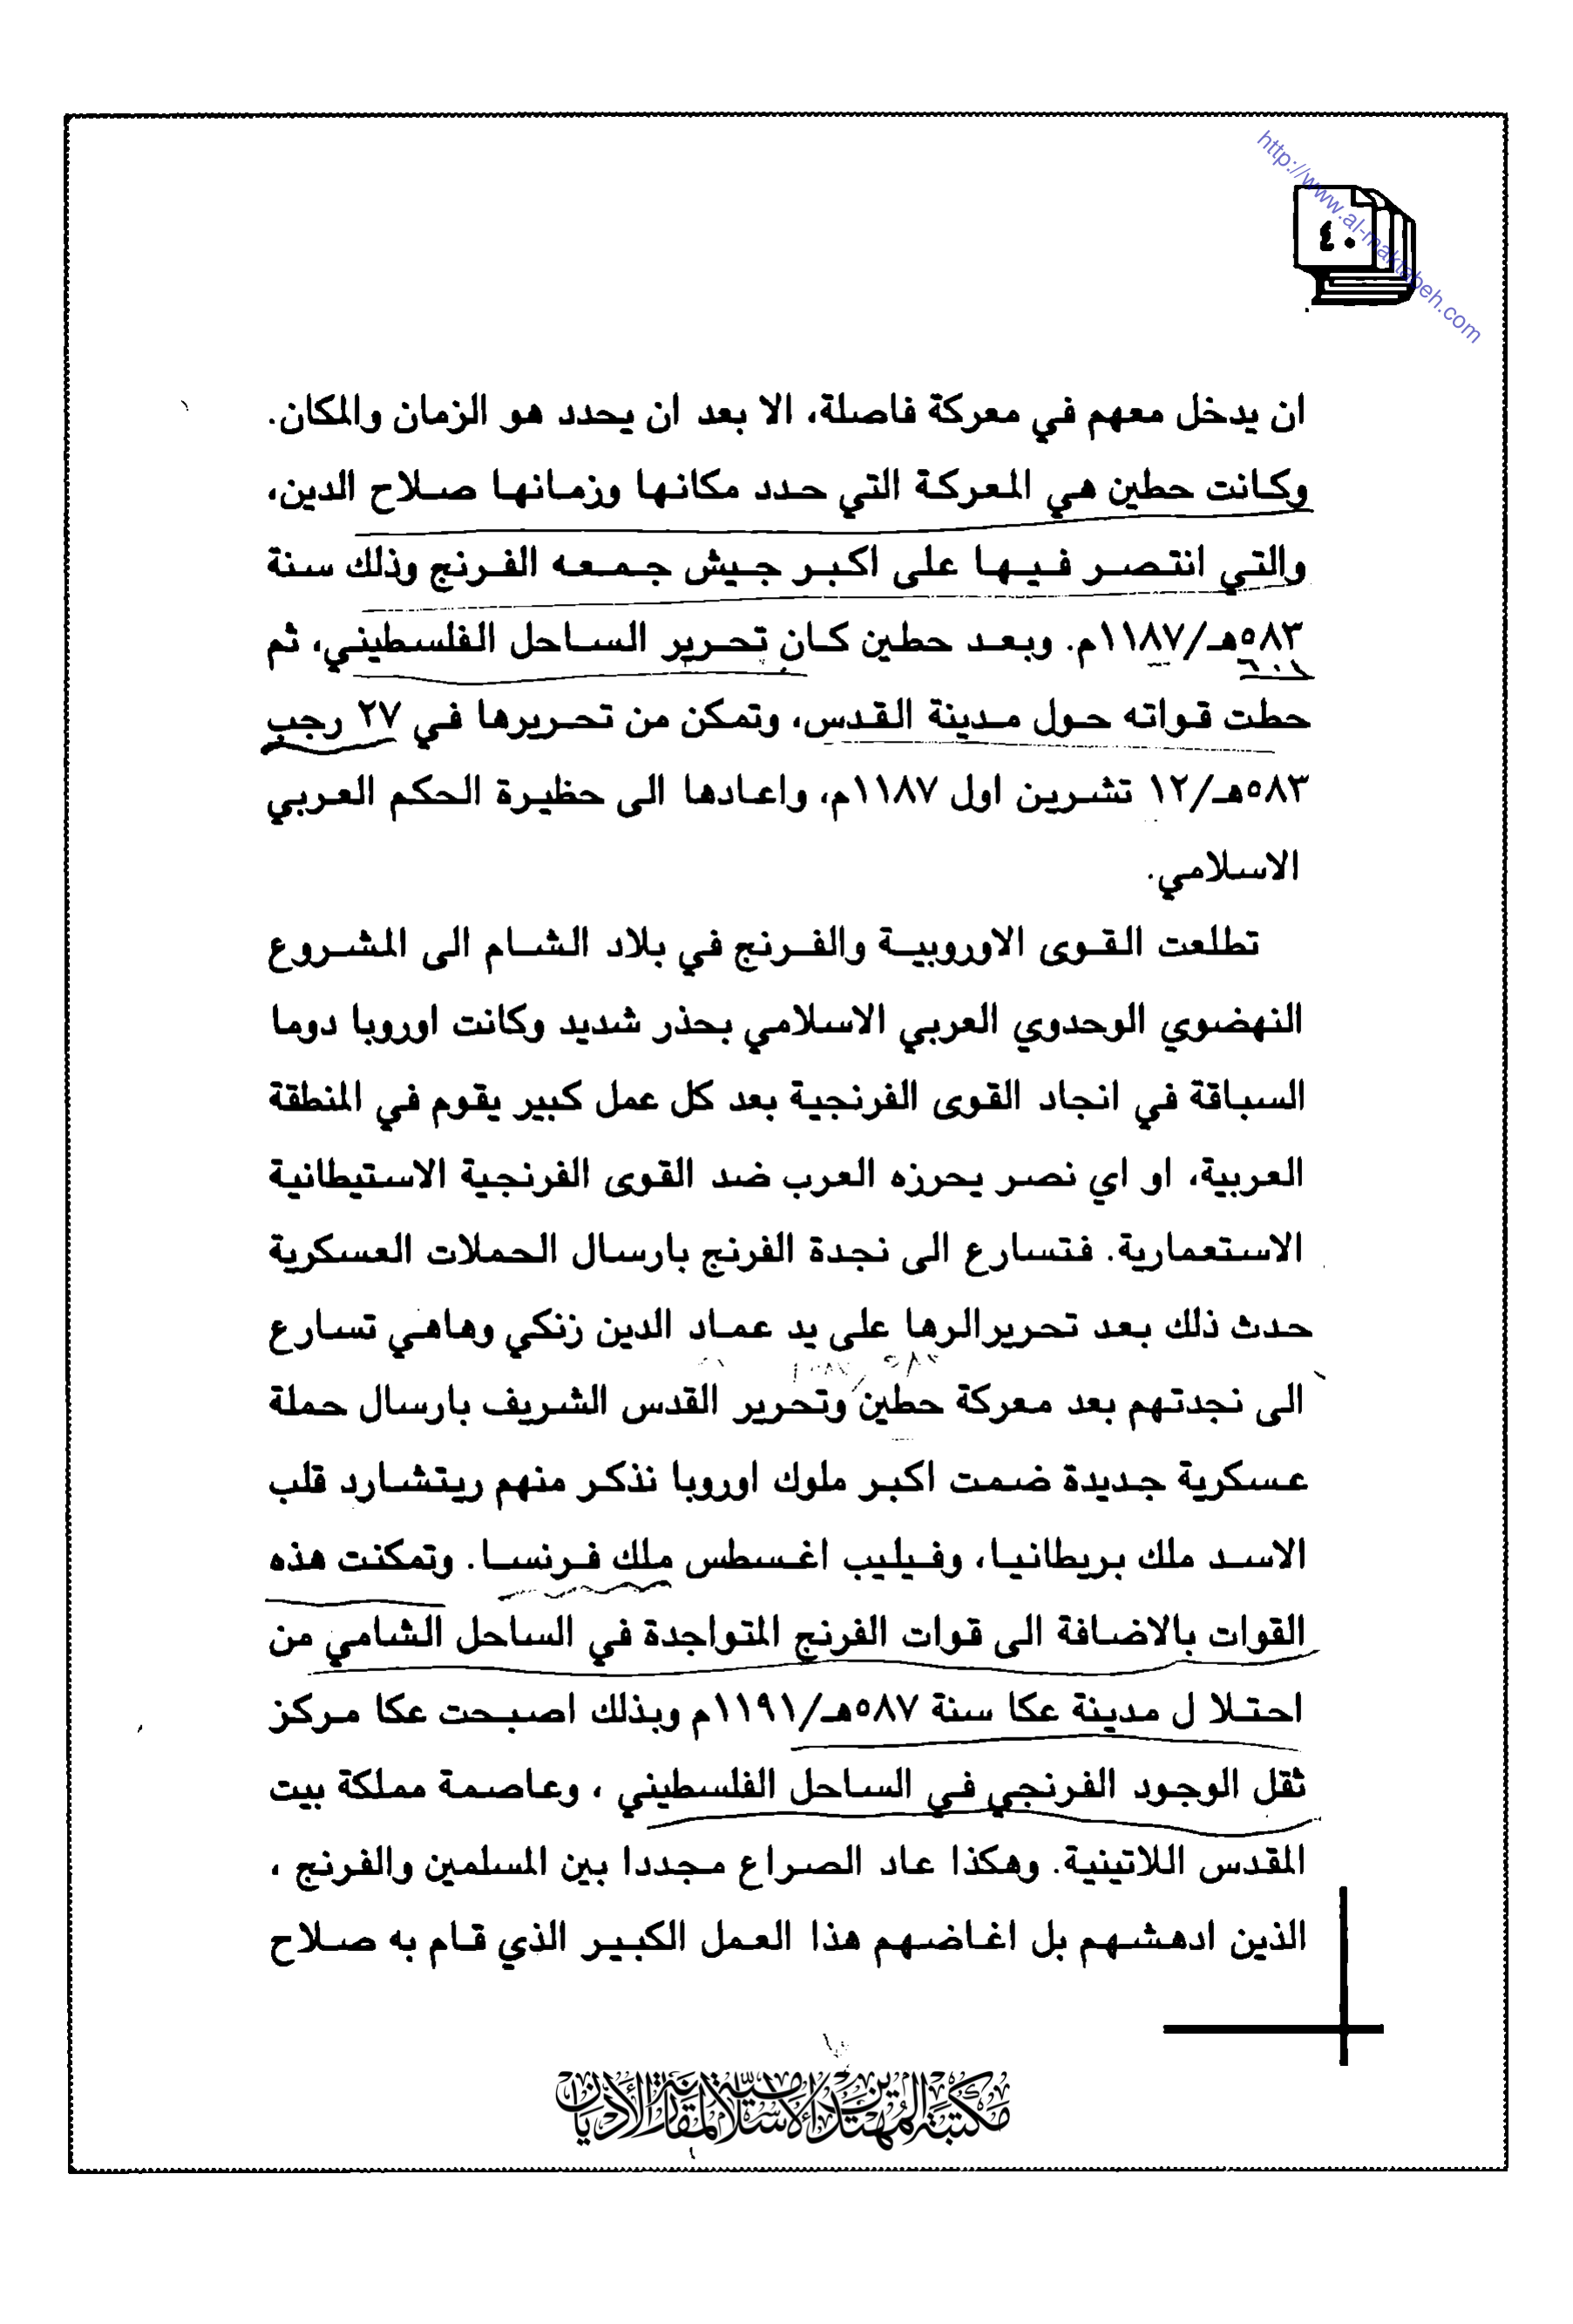 http://www.al-maktabeh.com
٤٠
ان يدخل معهم في معركة فاصلة، الا بعد ان يحدد هو الزمان والمكان.
وكانت حطين هي المعركة التي حدد مكانها وزمانها صلاح الدين،
والتي انتصر فيها على اكبر جيش جمعه الفرنج وذلك سنة
٥٨٣هـ/١١٨٧م. وبعد حطين كان تحرير الساحل الفلسطيني، ثم
حطت قواته حول مدينة القدس، وتمكن من تحريرها في ٢٧ رجب
٥٨٣هـ/١٢ تشرين اول ١١٨٧م، واعادها الى حظيرة الحكم العربي
الاسلامي.
تطلعت القوى الاوروبية والفرنج في بلاد الشام الى المشروع
النهضوي الوحدوي العربي الاسلامي بحذر شديد وكانت اوروبا دوما
السباقة في انجاد القوى الفرنجية بعد كل عمل كبير يقوم في المنطقة
العربية، او اي نصر يحرزه العرب ضد القوى الفرنجية الاستيطانية
الاستعمارية. فتسارع الى نجدة الفرنج بارسال الحملات العسكرية
حدث ذلك بعد تحريرالرها على يد عماد الدين زنكي وهاهي تسارع
الى نجدتهم بعد معركة حطين وتحرير القدس الشريف بارسال حملة
عسكرية جديدة ضمت اكبر ملوك اوروبا نذكر منهم ريتشارد قلب
الاسد ملك بريطانيا، وفيليب اغسطس ملك فرنسا. وتمكنت هذه
القوات بالاضافة الى قوات الفرنج المتواجدة في الساحل الشامي من
احتلا ل مدينة عكا سنة ٥٨٧هـ/١١٩١م وبذلك اصبحت عكا مركز
ثقل الوجود الفرنجي في الساحل الفلسطيني ، وعاصمة مملكة بيت
المقدس اللاتينية. وهكذا عاد الصراع مجددا بين المسلمين والفرنج ،
الذين ادهشهم بل اغاضهم هذا العمل الكبير الذي قام به صلاح
مكتبة المهتدين الإسلامية لمقارنة الأديان